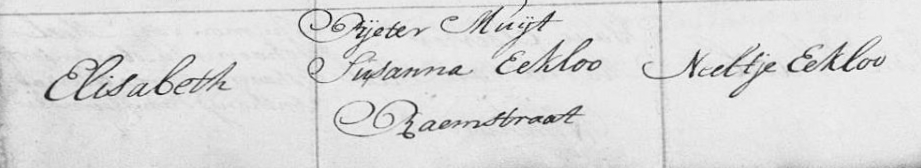 Pijeter Muijt
Elisabeth Susanna Eekloo Neeltje Eekloo
Raemstraat